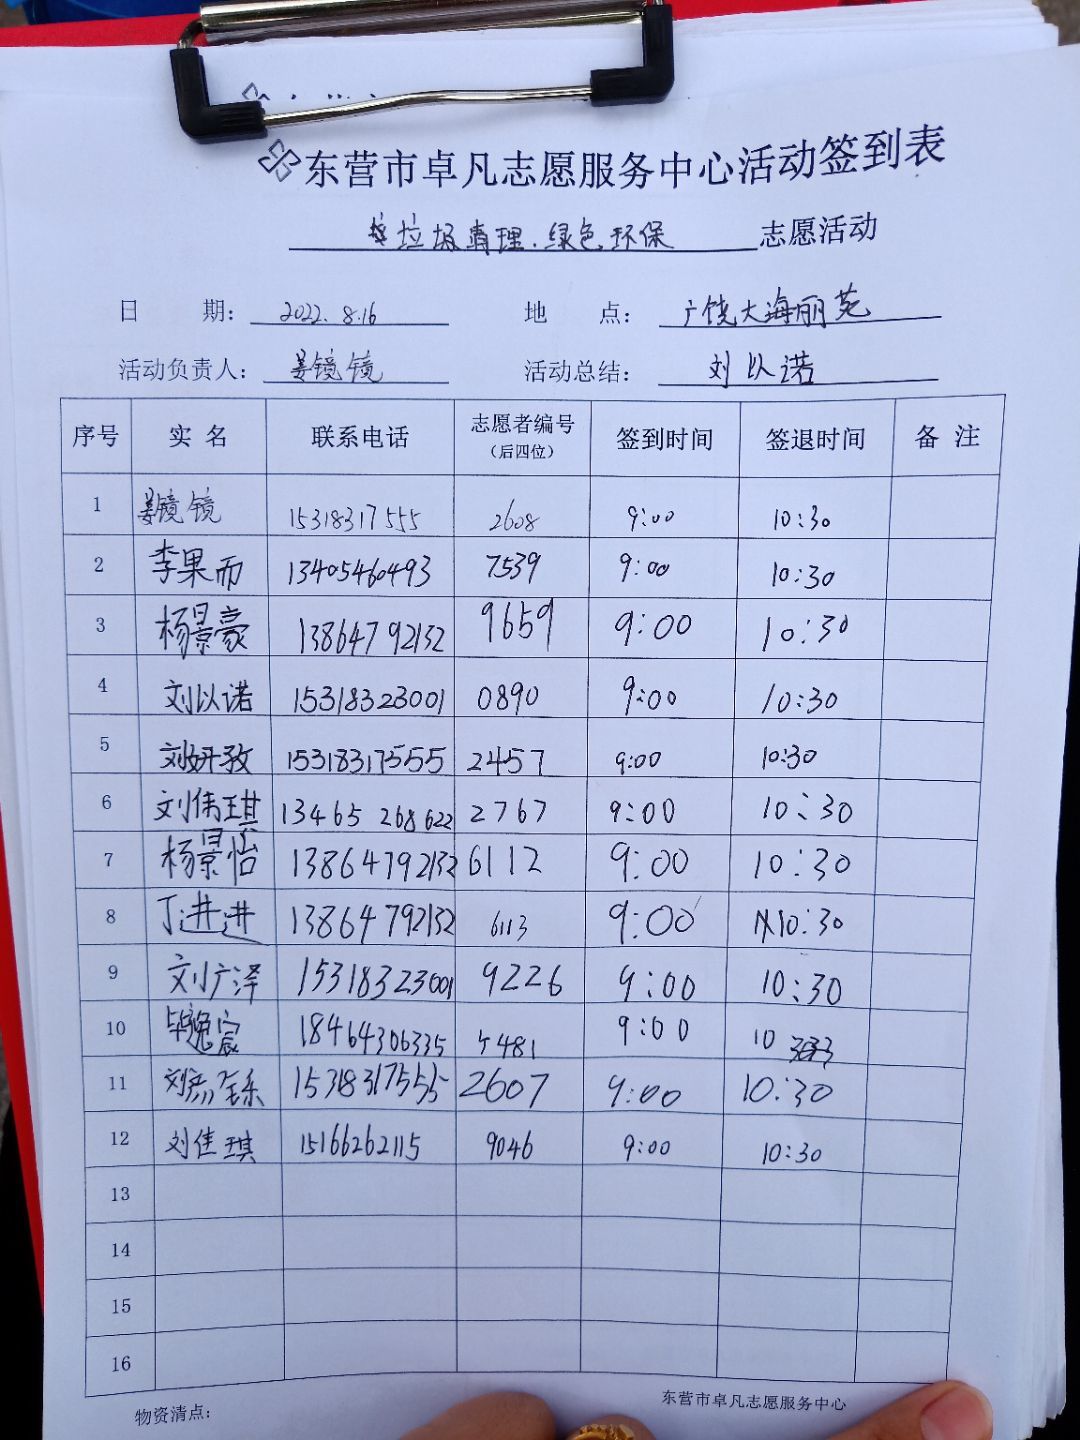 东营市卓凡志愿服务中心活动签到表
垃圾清理.绿色环保 志愿活动
日 期: 2022.8.16 地 点: 广饶大海丽苑
活动负责人: 姜镜镜 活动总结: 刘以诺
序号 实名 联系电话 志愿者编号(后四位) 签到时间 签退时间 备注
1 姜镜镜 15318317555 2608 9:00 10:30
2 李果而 13405460493 7539 9:00 10:30
3 杨景豪 13864792132 9659 9:00 10:30
4 刘以诺 15318323001 0890 9:00 10:30
5 刘妍孜 15318317555 2457 9:00 10:30
6 刘伟琪 13465268622 2767 9:00 10:30
7 杨景怡 13864792132 6112 9:00 10:30
8 丁进进 13864792132 6113 9:00 10:30
9 刘广泽 15318323001 9226 9:00 10:30
10 毕逸宸 18464306335 5481 9:00 10
11 刘 15318317555 2607 9:00 10:30
12 刘佳琪 15166262115 9046 9:00 10:30
13
14
15
16
物资清点: 东营市卓凡志愿服务中心